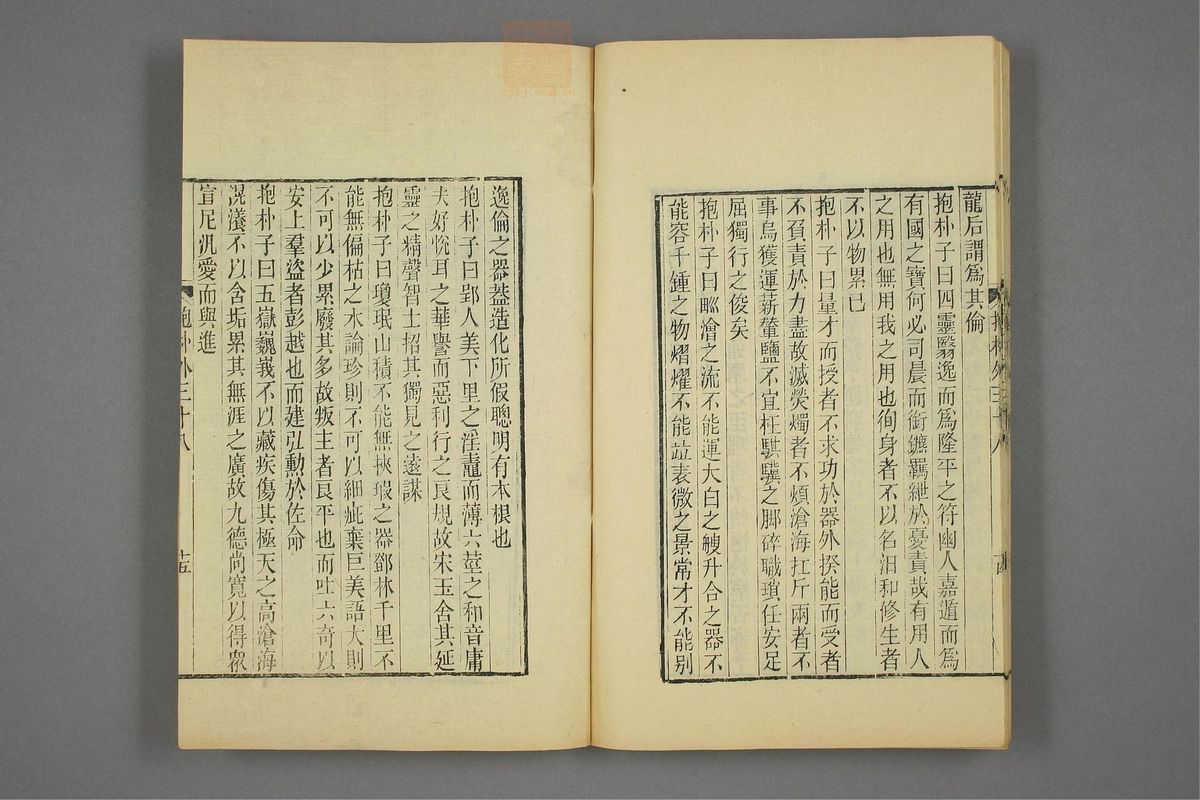 龍后謂爲其倫
抱朴子曰四靈翳逸而爲隆平之符幽人嘉遁而爲
有國之寶何必司晨而銜鑣羈紲於憂責哉有用人
之用也無用我之用也徇身者不以名汨和修生者
不以物累己
抱朴子曰量才而授者不求功於器外揆能而受者
不負責於力盡故滅熒燭者不煩滄海扛斤兩者不
事烏獲運薪輦鹽不宜枉騏驥之脚碎職瑣任安足
屈獨行之俊矣
抱朴子曰畎澮之流不能運大白之艘升合之器不
能容千鍾之物熠燿不能竝表微之景常才不能別
逸倫之器葢造化所假聰明有本根也
抱朴子曰郢人美下里之淫鼃而薄六莖之和音庸
夫好悅耳之華譽而惡利行之良規故宋玉舍其延
靈之精聲智士招其獨見之遠謀
抱朴子曰瓊珉山積不能無挾瑕之器鄧林千里不
能無偏枯之木論珍則不可以細疵棄巨美語大則
不可以少累廢其多故叛主者良平也而吐六奇以
安上羣盜者彭越也而建弘勳於佐命
抱朴子曰五嶽巍峩不以藏疾傷其極天之高滄海
滉瀁不以含垢累其無涯之廣故九德尚寬以得衆
宣尼汎愛而與進
抱朴外三十八
十五